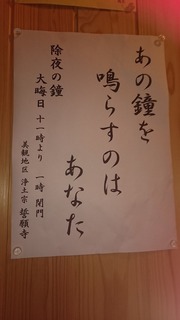 あの鐘を
鳴らすのは
あなた
除夜の鐘
大晦日 十一時より 一時 閉門
美観地区 浄土宗 誓願寺